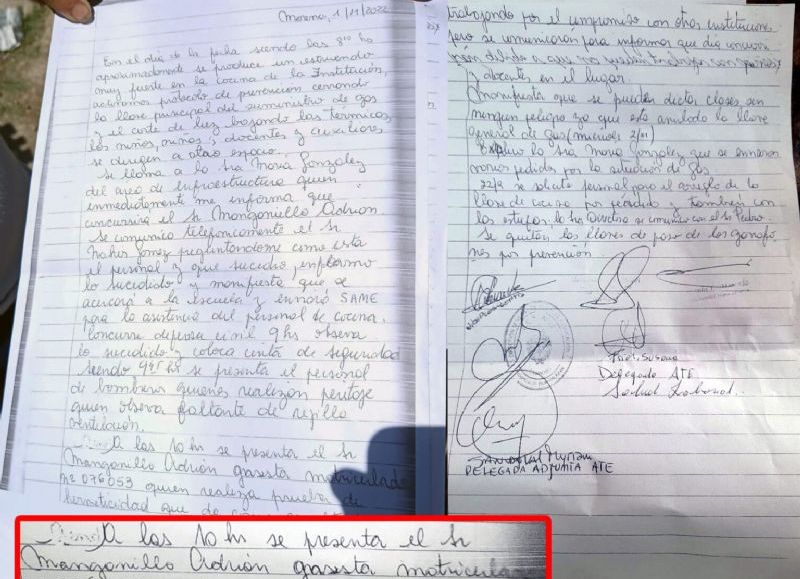 Moreno, 1/11/2022
En el día de la fecha siendo las 8:10 hs
aproximadamente se produce un estruendo
muy fuerte en la cocina de la Institución,
activamos protocolo de prevención cerrando
la llave principal del suministro de gas
y el corte de luz bajando las térmicas,
los niños, niñas, docentes y auxiliares
se dirigen a otro espacio.
Se llama a la sra María González
del area de infraestructura quien
inmediatamente me informa que
concurrirá el sr Manganillo Adrión
Se comunica telefonicamente el sr
Gomez preguntandome como está
el personal y que sucedió, informo
lo sucedido y manifiesta que se
acercará a la escuela y enviará SAME
para la asistencia del personal de cocina.
Concurre defensa civil 9hs observa
lo sucedido y coloca cinta de seguridad
siendo hs se presenta el personal
de bomberos quienes realizan peritaje
quien observa faltante de rejilla
ventilación.
A las 10 hs se presenta el sr
Manganillo Adrión gasista matriculado
Nº 076053 quien realiza prueba de
hermeticidad que
trabajando por el compromiso con otras instituciones
pero se comunicaran para informar que día
y docentes en el lugar.
Manifiesta que se pueden dictar clases sin
ningun peligro ya que está anulado la llave
general de gas (miercoles 2/11)
la sra María González que se enviaron
varios pedidos por la situación de gas.
se solicita personal para el arreglo de la
llave de cocina por perdida y tambien con
las estufas, la sra Directora se comunica con el sr Pedro.
Se quitan las llaves de paso de los
por prevención
Susana
Delegada ATE
Salud Laboral.
Sandoval Myriam
DELEGADA ADJUNTA ATE
A las 10 hs se presenta el sr
Manganillo Adrión gasista